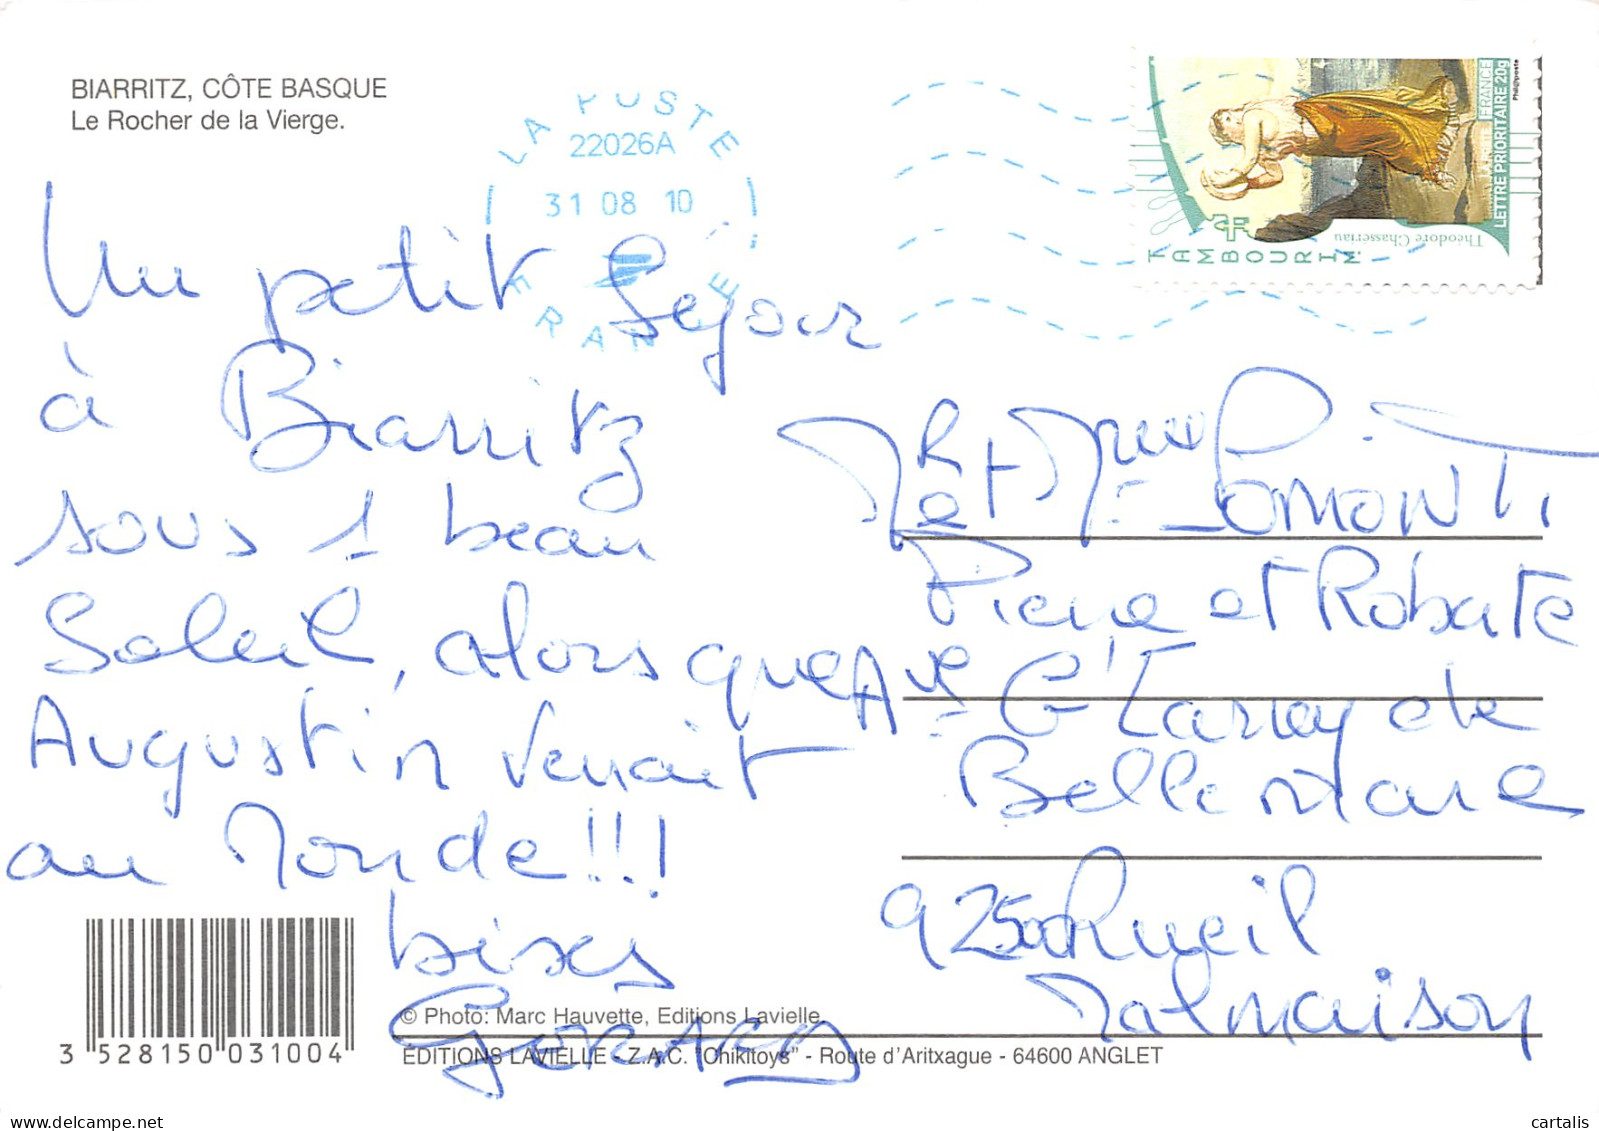 BIARRITZ, CÔTE BASQUE
Le Rocher de la Vierge.
LA POSTE
22026A
31 08 10
FRANCE
FRANCE
LETTRE PRIORITAIRE 20g
Phil@poste
Théodore Chassériau
TAMBOURIN
Un petit Séjour
à Biarritz
sous 1 beau
Soleil, alors que
Augustin venait
au Monde!!!
bises
GERARD
Mr et Mme
Pierre et Roberte
Ave G'Larrey de
Belle mare
92500 Rueil
Malmaison
3 528150 031004
© Photo: Marc Hauvette, Editions Lavielle
ÉDITIONS LAVIELLE - Z.A.C. "Ohikitoys" - Route d'Aritxague - 64600 ANGLET
cartalis
delcampe.net